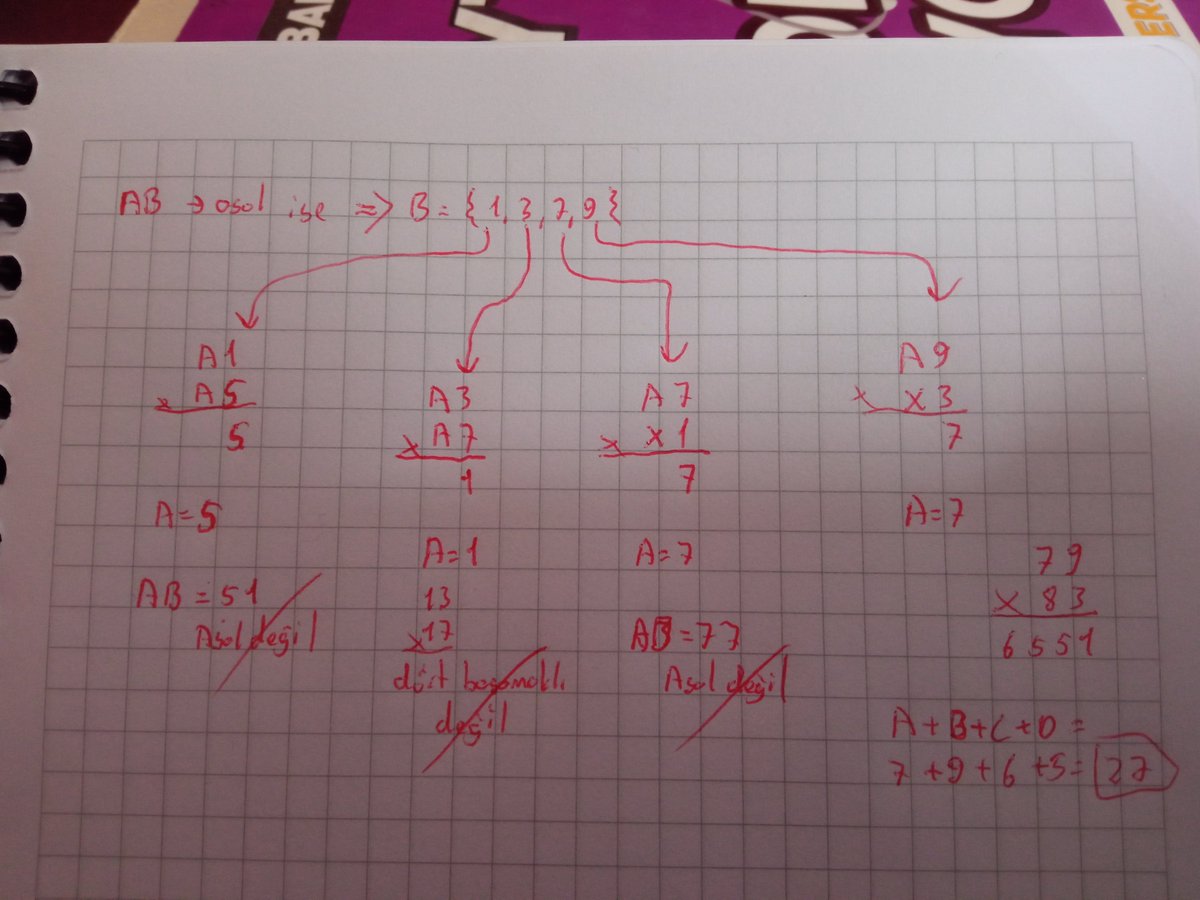 AB → asal ise => B = {1, 3, 7, 9}
A1
x A5
5
A = 5
AB = 51
Asal değil
A3
x A7
1
A = 1
13
x17
dört basamaklı
değil
A7
x x1
7
A = 7
AB = 77
Asal değil
A9
x x3
7
A = 7
79
x 83
6551
A + B + C + D =
7 + 9 + 6 + 5 = 27